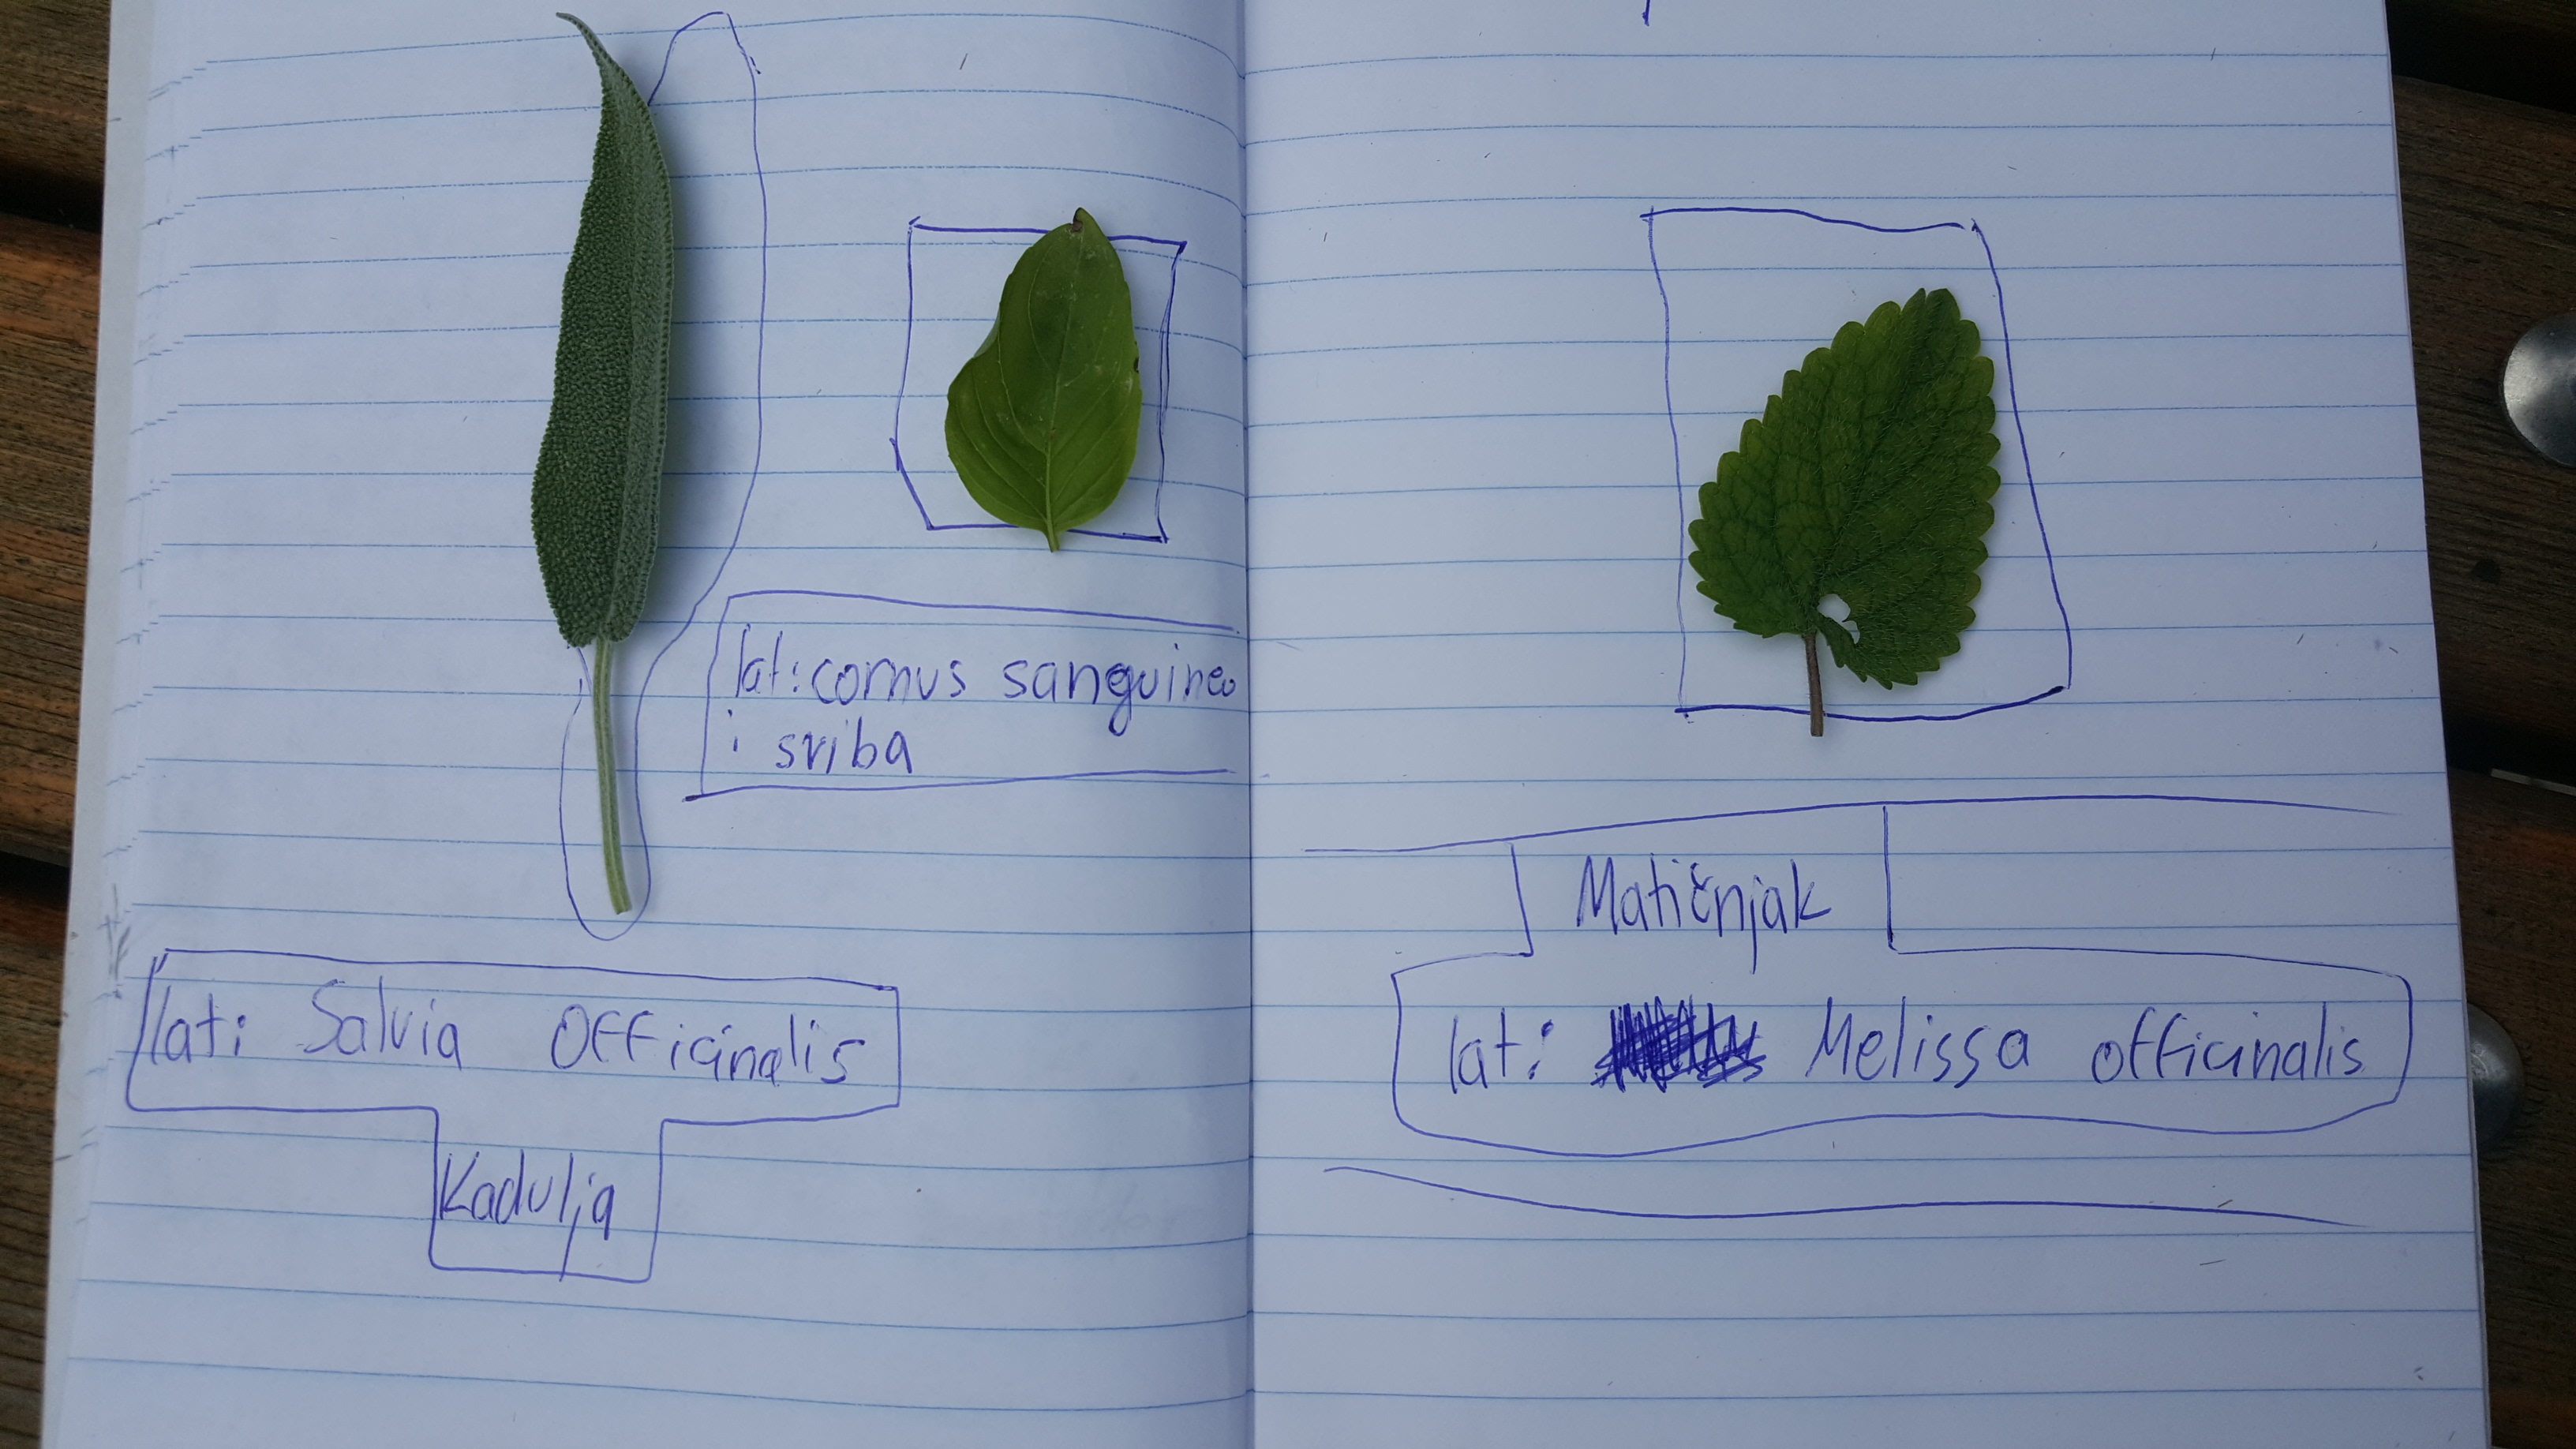 lat: cornus sanguinea
i sviba
lat: Salvia Officinalis
Kadulja
Matičnjak
lat: Melissa officinalis